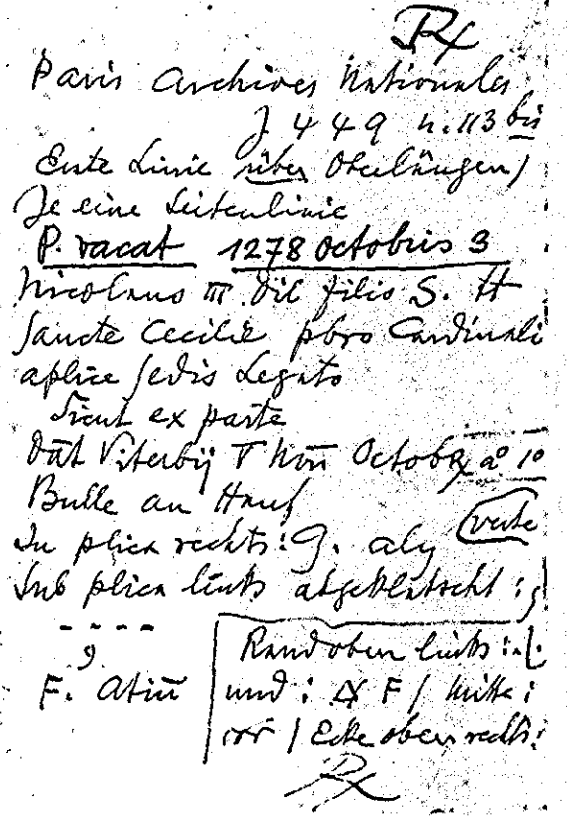 Rx
Paris Archives Nationales
J 449 n. 113 bis
Erste Linie über Oberlängen /
Je eine Seitenlinie
P. vacat 1278 Octobris 3
Nicolaus III Dil filio S. tt
Sancte Cecilie pbro Cardinali
aplice sedis Legato
Sicut ex parte
Dat Viterbij V Non Octobr a° 1°
Bulle an Hanf
verte
In plica rechts: G. aly
Sub plica links abgeklatscht :
- - - -
F. Atin
Rand oben links :
und : F / Mitte :
/ Ecke oben rechts :
Rx